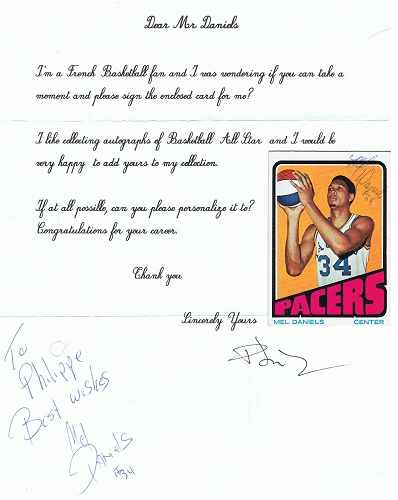 Dear Mr Daniels
I'm a French Basketball fan and I was wondering if you can take a
moment and please sign the enclosed card for me?
I like collecting autographs of Basketball All Star and I would be
very happy to add yours to my collection.
If at all possible, can you please personalize it to?
Congratulations for your career.
Thank you
Sincerely Yours
34
PACERS
MEL DANIELS CENTER
To
Philippe
Best wishes
Mel
Daniels
#34